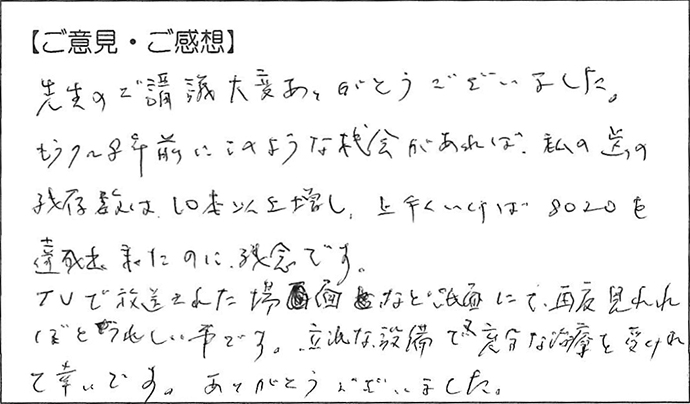 【ご意見・ご感想】
先生のご講議大変ありがとうございました。
もう7〜8年前にこのような機会があれば、私の歯の
残存数は、10本以上増し、上手くいけば8020も
達成出来たのに、残念です。
TVで放送された場面 画面など紙面にて、再度見れれ
ばとうれしい事です。立派な設備で充分な治療を受けれ
て幸いです。ありがとうございました。